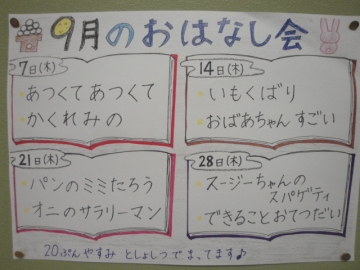 9月のおはなし会
7日(木)
あつくてあつくて
かくれみの
14日(木)
いもくばり
おばあちゃん すごい
21日(木)
パンのミミたろう
オニのサラリーマン
28日(木)
スージーちゃんの
スパゲティ
できることおてつだい
20ぷんやすみ としょしつで まってます♪